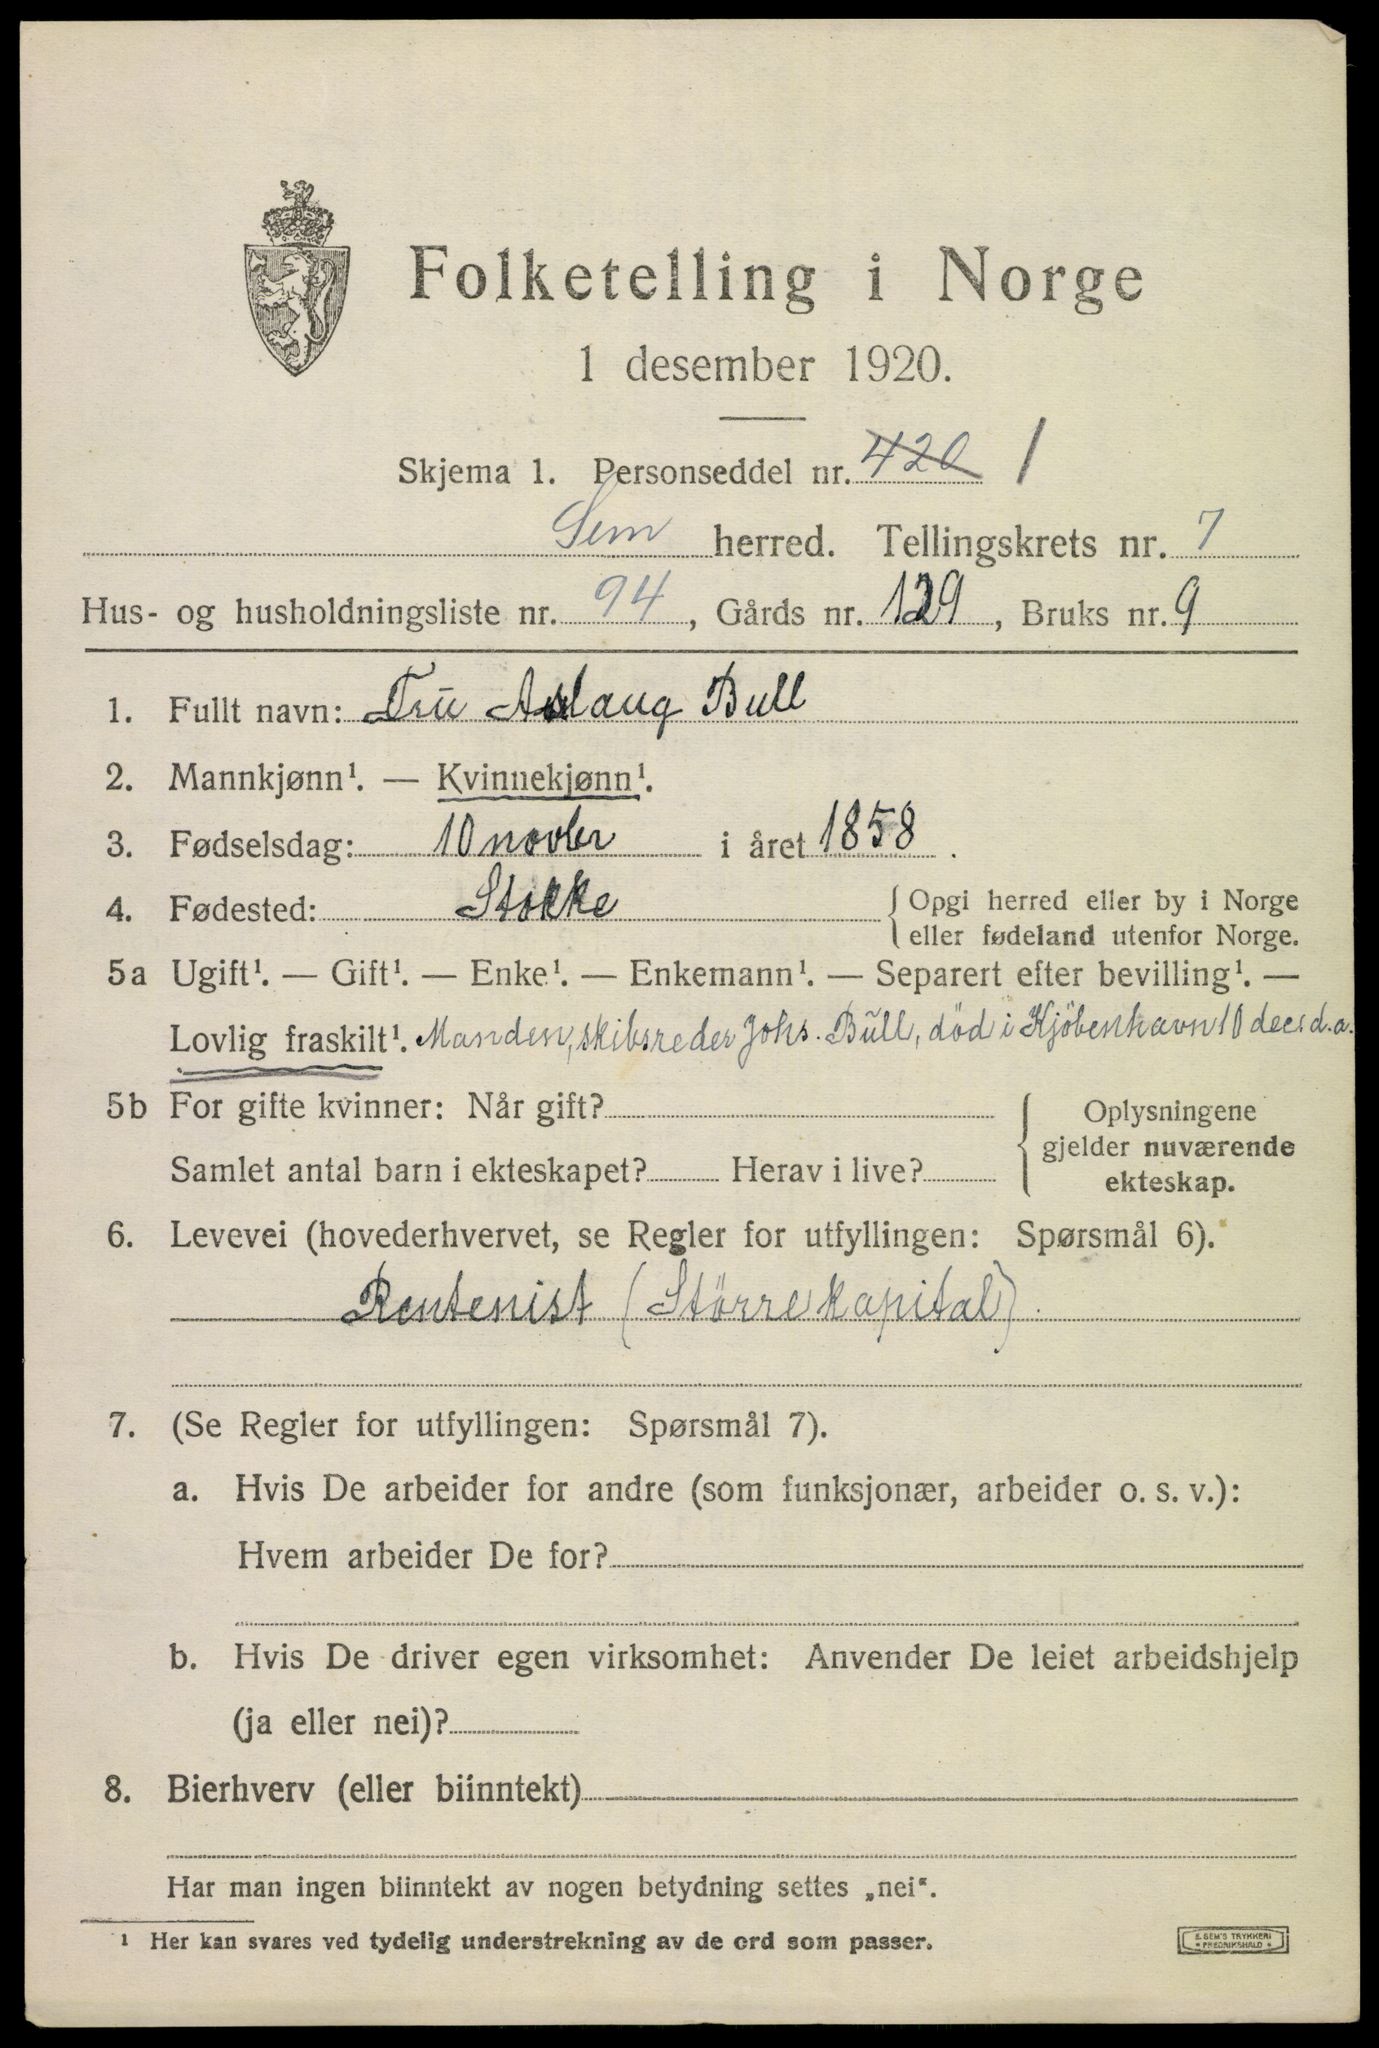 Folketelling i Norge
1 desember 1920.
Skjema 1. Personseddel nr. 420 1
Sem herred. Tellingskrets nr. 7
Hus- og husholdningsliste nr. 94, Gårds nr. 129, Bruks nr. 9
1. Fullt navn: Fru Aslaug Bull
2. Mannkjønn¹. — Kvinnekjønn¹.
3. Fødselsdag: 10 novbr i året 1858.
4. Fødested: Stokke { Opgi herred eller by i Norge
eller fødeland utenfor Norge.
5a Ugift¹. — Gift¹. — Enke¹. — Enkemann¹. — Separert efter bevilling¹. —
Lovlig fraskilt¹. Manden, skibsreder Johs. Bull, död i Kjöbenhavn 10 dec. d.a.
5b For gifte kvinner: Når gift? { Oplysningene
gjelder nuværende
Samlet antal barn i ekteskapet? Herav i live?
ekteskap.
6. Levevei (hovederhvervet, se Regler for utfyllingen: Spørsmål 6).
Rentenist (Större kapital).
7. (Se Regler for utfyllingen: Spørsmål 7).
a. Hvis De arbeider for andre (som funksjonær, arbeider o. s. v.):
Hvem arbeider De for?
b. Hvis De driver egen virksomhet: Anvender De leiet arbeidshjelp
(ja eller nei)?
8. Bierhverv (eller biinntekt)
Har man ingen biinntekt av nogen betydning settes „nei“.
¹ Her kan svares ved tydelig understrekning av de ord som passer.
E. SEM'S TRYKKERI
• FREDRIKSHALD •